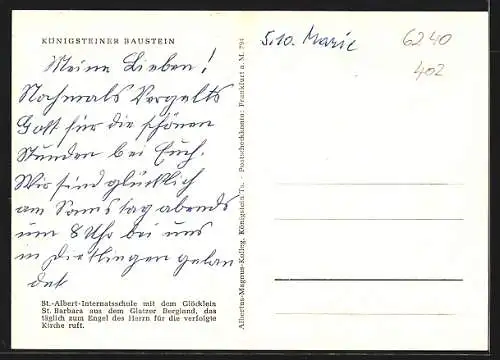 KÖNIGSTEINER BAUSTEIN
Meine Lieben!
Nochmals Vergelts
Gott für die schönen
Stunden bei Euch.
Wir sind glücklich
am Samstag abends
um 8 Uhr bei uns
in Dietlingen gelan
det
St.-Albert-Internatsschule mit dem Glöcklein
St. Barbara aus dem Glatzer Bergland, das
täglich zum Engel des Herrn für die verfolgte
Kirche ruft.
Albertus-Magnus-Kolleg, Königstein/Ts. · Postscheckkonto: Frankfurt a. M. 794
5.10. Marie
6240
402